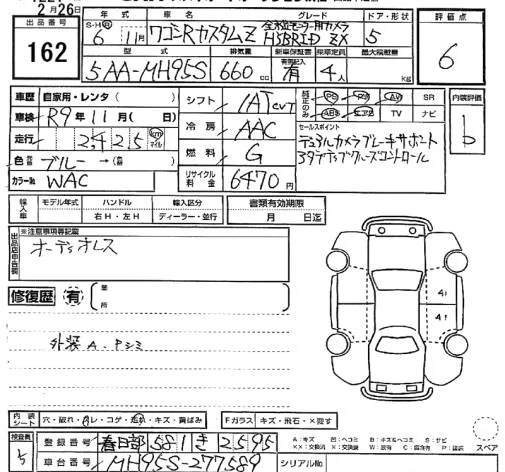 2月26日
出品番号
162
年式 車名 グレード ドア・形状
S・H・R 6年 11月 ワゴンRカスタムZ 全方位モニター用カメラ HYBRID ZX 5
型式 排気量 新車保証書 乗車定員 最大積載量
5AA-MH95S 660cc 有 4人 kg
評価点
6
車歴 自家用・レンタ
車検 R9年11月( 日)
走行 2,425 km マイル
色 ブルー →(
カラーNo WAC
シフト IAT CVT
冷房 AAC
燃料 G
リサイクル料金 6470円
純正のみ PS PW AW SR
ABS エアB TV ナビ
内装評価
b
セールスポイント
デュアルカメラブレーキサポート
アダプティブクルーズコントロール
輸入車 モデル年式 ハンドル 輸入区分 書類有効期限
右H・左H ディーラー・並行 月 日迄
出品店申告欄
※注意事項等記載
オーディオレス
修復歴 有
箇所
外装A、Pシミ
A1
A1
内装シート 穴・破れ・スレ・コゲ・汚れ・キズ・黄ばみ
Fガラス キズ・飛石・×渡す
検査員
登録番号 春日部 581 き 2595
車台番号 MH95S-277589
シリアルNo
A:キズ U:ヘコミ B:キズ&ヘコミ S:サビ
スペア